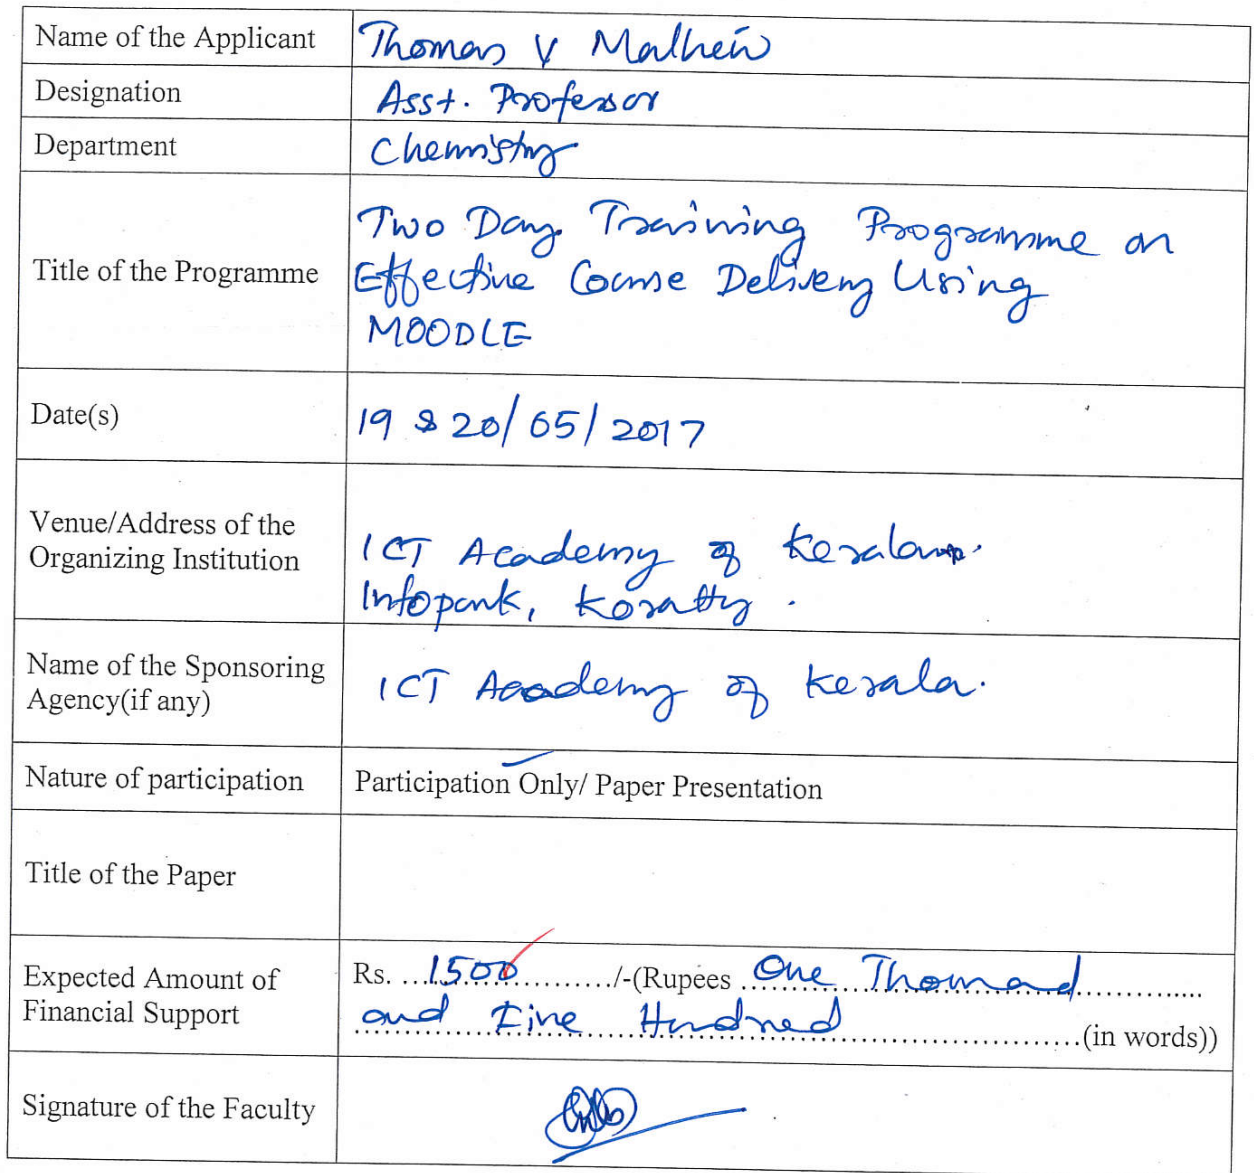 Name of the Applicant Thomas V Mathew
Designation Asst. Professor
Department Chemistry
Title of the Programme Two Day Training Programme on
Effective Course Delivery Using
MOODLE
Date(s) 19 & 20/05/2017
Venue/Address of the
Organizing Institution ICT Academy of Kerala.
Infopark, Koratty.
Name of the Sponsoring
Agency(if any) ICT Academy of Kerala.
Nature of participation Participation Only/ Paper Presentation
Title of the Paper
Expected Amount of
Financial Support Rs. ...1500............/-(Rupees One Thousand
and Five Hundred (in words))
Signature of the Faculty